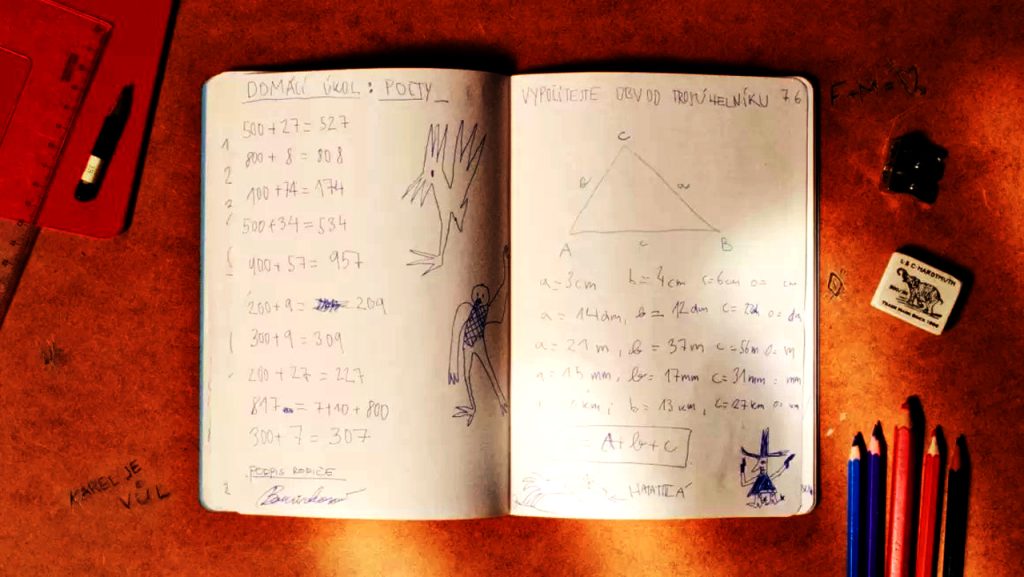 DOMÁCÍ ÚKOL: POČTY
500+27=527
800+8=808
100+74=174
500+34=534
900+57=957
200+9= 209
300+9=309
200+27=227
817=7+10+800
300+7=307
PODPIS RODIČE
VYPOČÍTEJTE OBVOD TROJÚHELNÍKU 76
C
b a
A c B
a=3cm b=4cm c=6cm o= cm
a=14dm, b=12dm c= o= dm
a=21m, b=37m c=56m o= m
a=15mm, b=17mm c=31mm = mm
b=13km, c=27km o=
= A+b+c
KAREL JE
VŮL
L.& C. HARDTMUTH